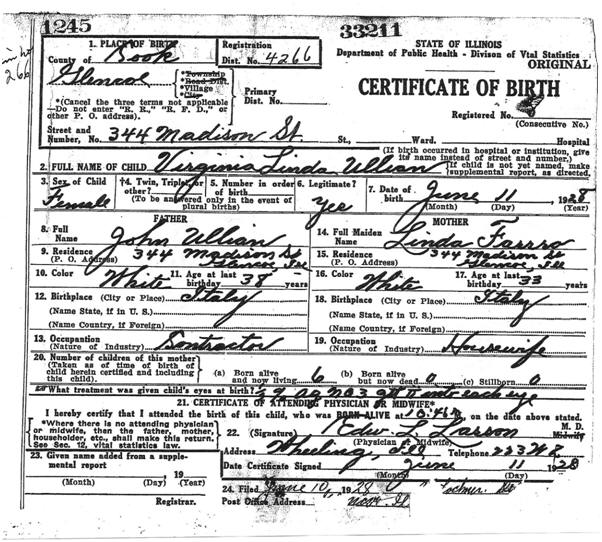 1245
33211
1. PLACE OF BIRTH
County of Cook
Registration Dist. No. 4266
STATE OF ILLINOIS
Department of Public Health - Divison of Vital Statistics
ORIGINAL
Glencoe
*Township
*Road Dist.
*Village
*City
Primary Dist. No.
CERTIFICATE OF BIRTH
*(Cancel the three terms not applicable
—Do not enter "R. R.," "R. F. D.," or
other P. O. address).
Registered No.
(Consecutive No.)
Street and Number, No. 344 Madison St. St., Ward. Hospital
(If birth occurred in hospital or institution, give
its name instead of street and number.)
2. FULL NAME OF CHILD Virginia Linda Ullian
(If child is not yet named, make
supplemental report, as directed.
3. Sex of Child Female
†4. Twin, Triplet, or other?
5. Number in order of birth
(To be answered only in the event of plural births)
6. Legitimate? Yes
7. Date of birth June 11 1928
(Month) (Day) (Year)
FATHER
MOTHER
8. Full Name John Ullian
14. Full Maiden Name Linda Farsro
9. Residence (P. O. Address) 344 Madison St Glencoe, Ill
15. Residence (P. O. Address) 344 Madison St Glencoe, Ill
10. Color White
11. Age at last birthday 38 years
16. Color White
17. Age at last birthday 33 years
12. Birthplace (City or Place) Italy
(Name State, if in U. S.)
(Name Country, if Foreign)
18. Birthplace (City or Place) Italy
(Name State, if in U. S.)
(Name Country, if Foreign)
13. Occupation (Nature of Industry) Contractor
19. Occupation (Nature of Industry) Housewife
20. Number of children of this mother
(Taken as of time of birth of
child herein certified and including
this child).
(a) Born alive and now living 6
(b) Born alive but now dead 0
(c) Stillborn 0
What treatment was given child's eyes at birth? into each eye
21. CERTIFICATE OF ATTENDING PHYSICIAN OR MIDWIFE*
I hereby certify that I attended the birth of this child, who was BORN ALIVE at M., on the date above stated.
*Where there is no attending physician
or midwife, then the father, mother,
householder, etc., shall make this return.
See Sec. 12, vital statistics law.
22. (Signature) Edw. L. Larson M. D.
Midwife
(Physician or Midwife)
Address Wheeling, Ill Telephone 223 W 2
23. Given name added from a supplemental report
19
(Month) (Day)
Date Certificate Signed June 11 1928
(Month) (Day) (Year)
Registrar.
24. Filed June 10, 1928
Post Office Address